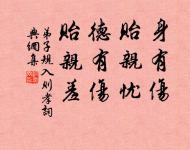 身有傷
貽親忧
德有傷
貽親羞
弟子規入则孝詞
典網集